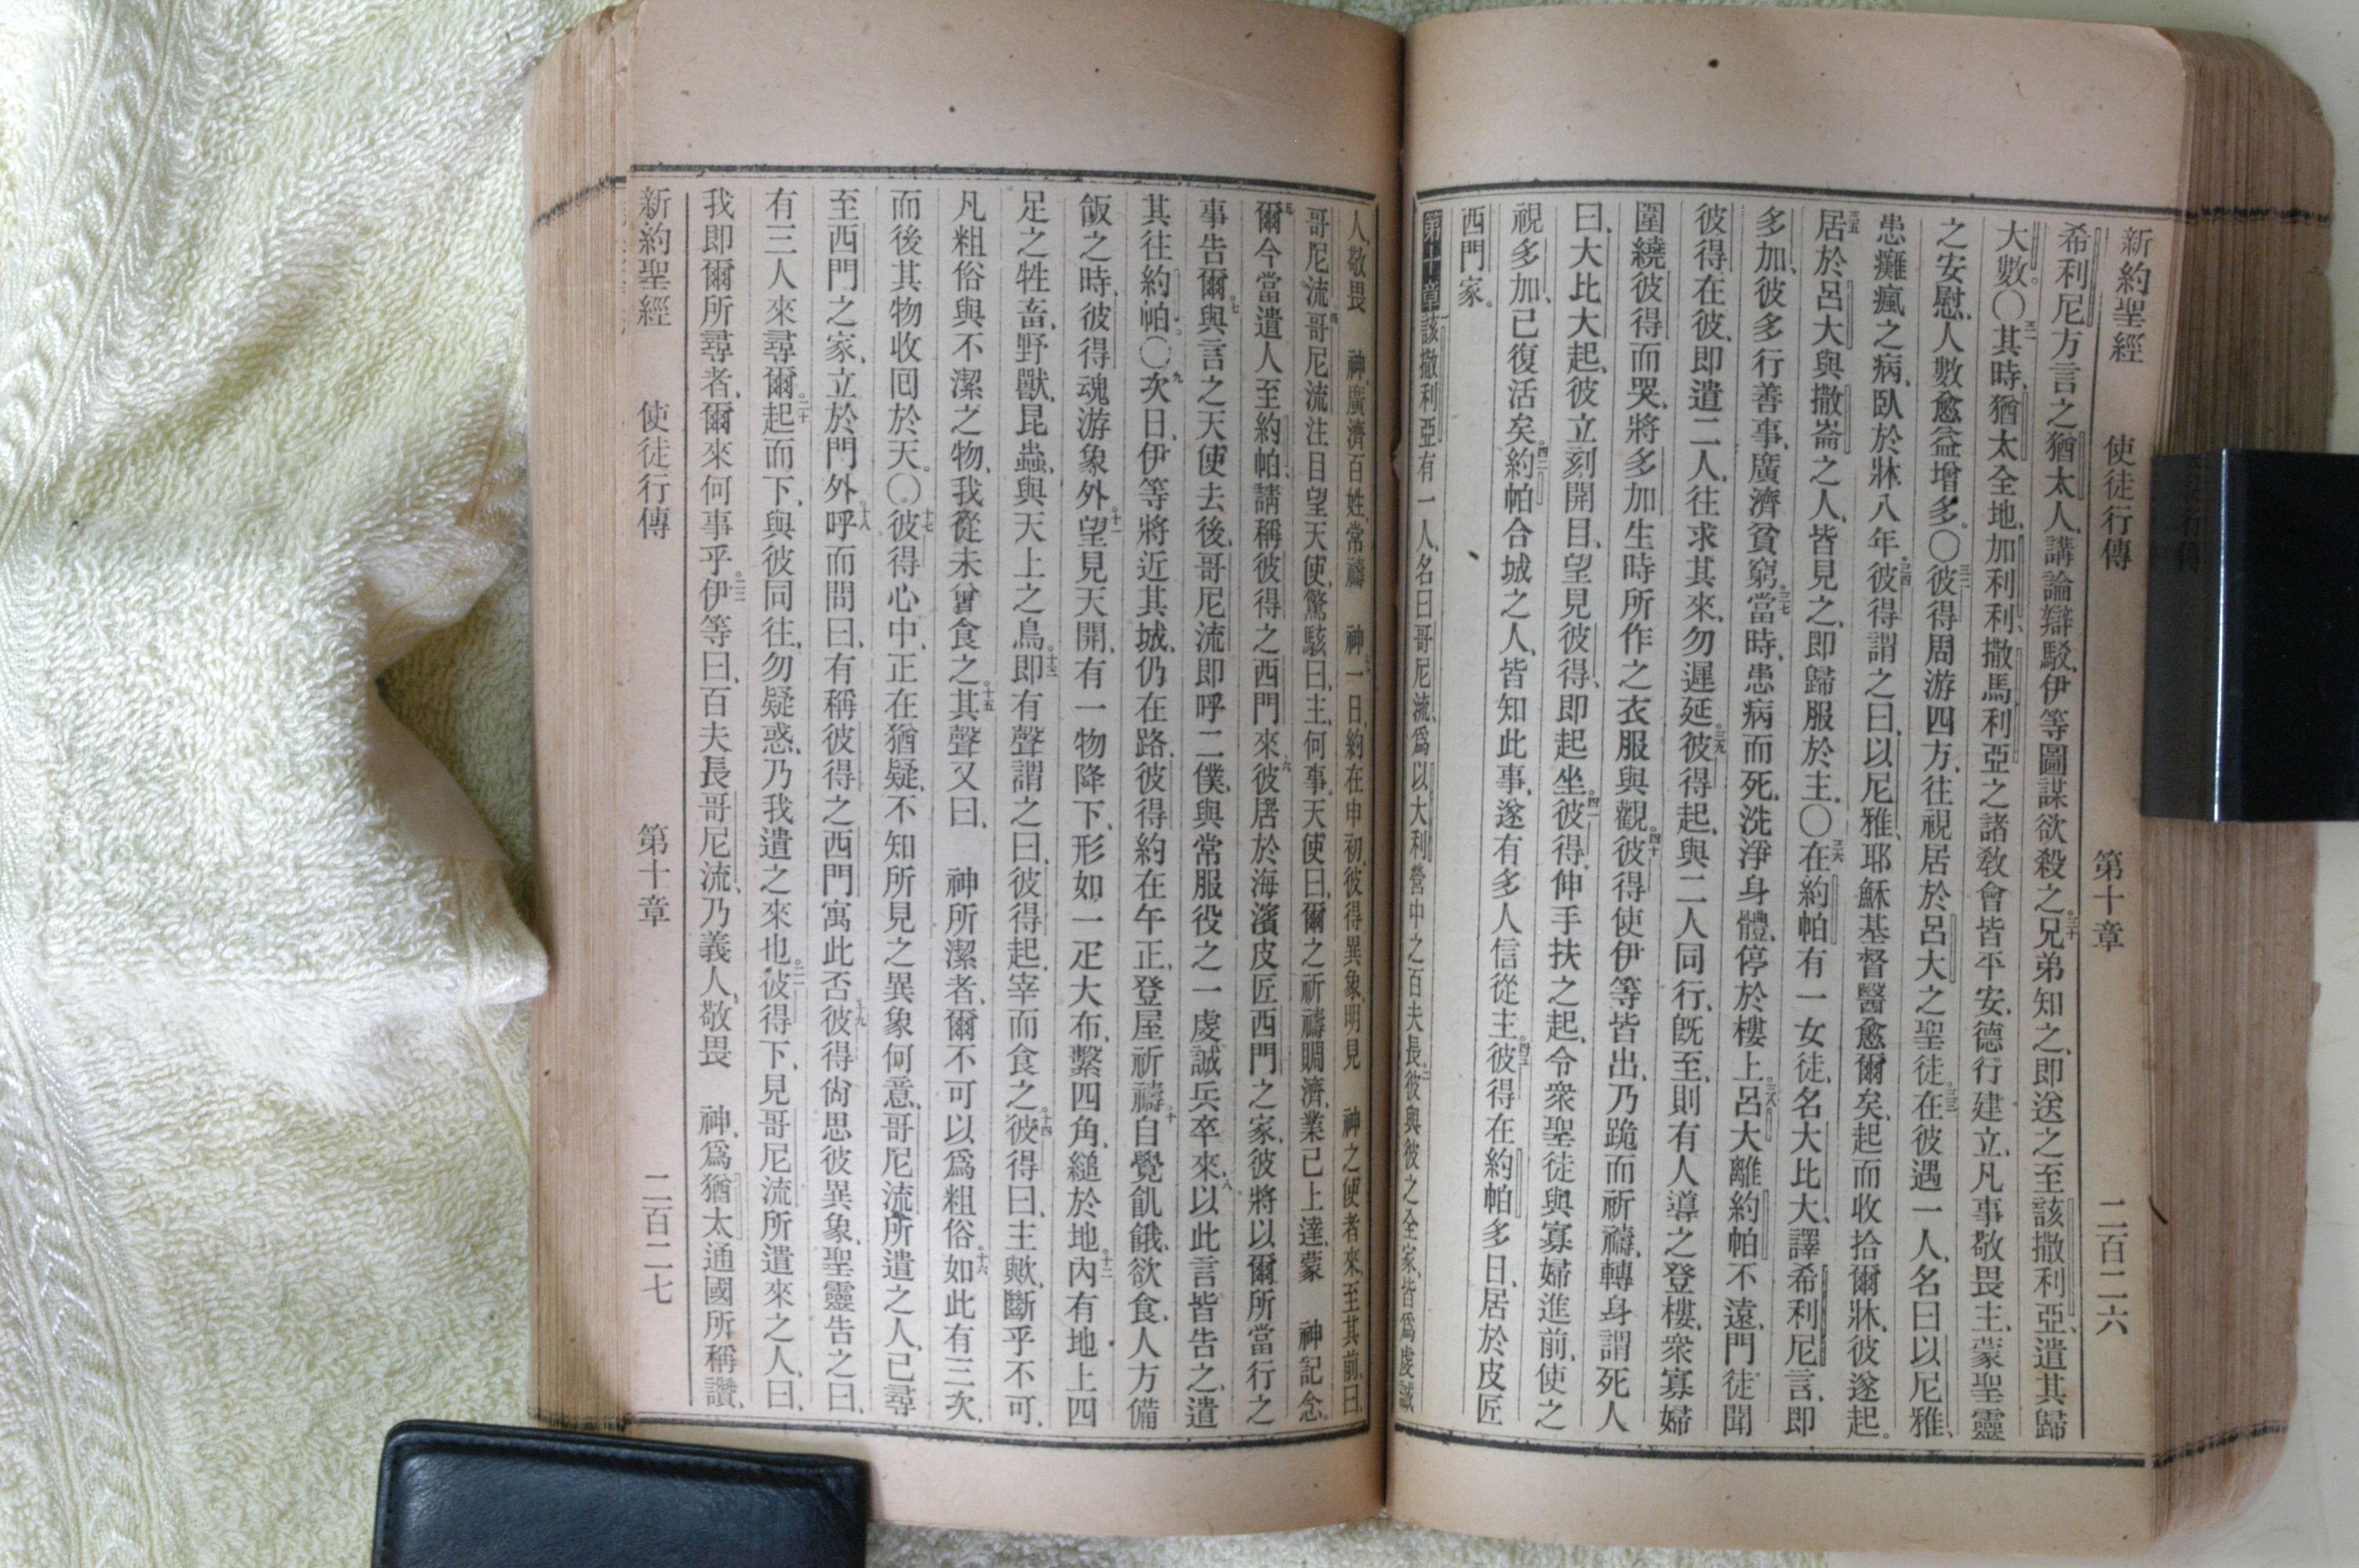 新約聖經 使徒行傳 第十章 二百二六
希利尼方言之猶太人、講論辯駁、伊等圖謀欲殺之。三十兄弟知之、即送之至該撒利亞、遣其歸
大數。〇三一其時、猶太全地、加利利、撒馬利亞之諸教會皆平安、德行建立、凡事敬畏主、蒙聖靈
之安慰、人數愈益增多。〇三二彼得周游四方、往視居於呂大之聖徒。三三在彼遇一人、名曰以尼雅、
患癱瘋之病、臥於牀八年。三四彼得謂之曰、以尼雅、耶穌基督醫愈爾矣、起而收拾爾牀、彼遂起。
三五居於呂大與撒崙之人、皆見之、即歸服於主。〇三六在約帕有一女徒、名大比大、譯希利尼言、即
多加、彼多行善事、廣濟貧窮。三七當時、患病而死、洗淨身體、停於樓上。三八呂大離約帕不遠、門徒聞
彼得在彼、即遣二人、往求其來、勿遲延。三九彼得起、與二人同行、旣至、則有人導之登樓、衆寡婦
圍繞彼得而哭、將多加生時所作之衣服與觀。四十彼得使伊等皆出、乃跪而祈禱、轉身謂死人
曰、大比大起、彼立刻開目、望見彼得、即起坐。四一彼得伸手扶之起、令衆聖徒與寡婦進前、使之
視多加、已復活矣。四二約帕合城之人、皆知此事、遂有多人信從主。四三彼得在約帕多日、居於皮匠
西門家。
第十章 該撒利亞有一人、名曰哥尼流、爲以大利營中之百夫長。二彼與彼之全家、皆爲虔誠
人、敬畏 神、廣濟百姓、常禱 神。三一日、約在申初、彼得異象、明見 神之使者來、至其前、曰、
哥尼流。四哥尼流注目望天使、驚駭曰、主、何事。天使曰、爾之祈禱賙濟、業已上達、蒙 神記念。
五爾今當遣人至約帕、請稱彼得之西門來。六彼居於海濱皮匠西門之家、彼將以爾所當行之
事告爾。七與言之天使去後、哥尼流即呼二僕、與常服役之一虔誠兵卒來。八以此言皆告之、遣
其往約帕。〇九次日、伊等將近其城、仍在路、彼得約在午正、登屋祈禱。十自覺飢餓、欲食、人方備
飯之時、彼得魂游象外。十一望見天開、有一物降下、形如一疋大布、繫四角、縋於地。十二內有地上四
足之牲畜、野獸、昆蟲、與天上之鳥。十三即有聲謂之曰、彼得起、宰而食之。十四彼得曰、主歟、斷乎不可、
凡粗俗與不潔之物、我從未曾食之。十五其聲又曰、 神所潔者、爾不可以爲粗俗。十六如此有三次、
而後其物收囘於天。〇十七彼得心中、正在猶疑、不知所見之異象何意、哥尼流所遣之人、已尋
至西門之家、立於門外。十八呼而問曰、有稱彼得之西門寓此否。十九彼得尙思彼異象、聖靈告之曰、
有三人來尋爾。二十起而下、與彼同往、勿疑惑、乃我遣之來也。二一彼得下、見哥尼流所遣來之人、曰、
我即爾所尋者、爾來何事乎。二二伊等曰、百夫長哥尼流、乃義人、敬畏 神、爲猶太通國所稱讚、
新約聖經 使徒行傳 第十章 二百二七